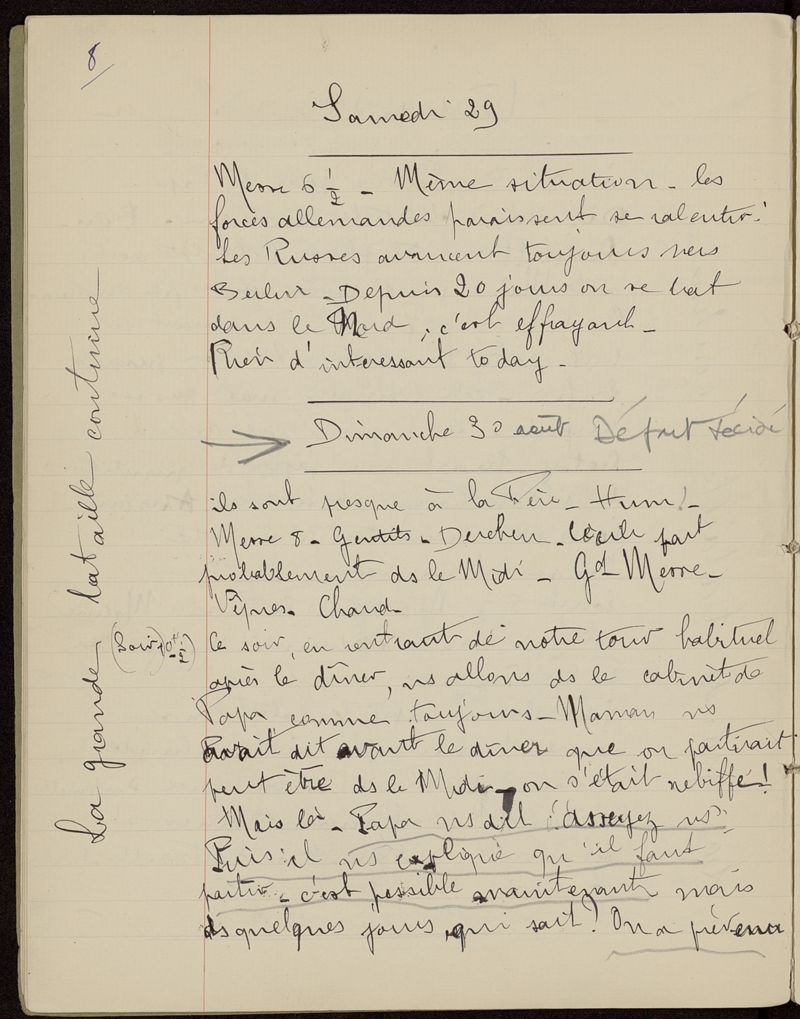 8
Samedi 29
Messe 6 1/2 - Même situation - les
forces allemandes paraissent se ralentir!
Les Russes avancent toujours vers
Berlin - Depuis 20 jours on se bat
dans le Nord, c'est effrayant -
Rien d'interessant today -
Dimanche 30 août Départ décidé
ils sont presque à la Fère - Hum! -
Messe 8 - Gentils - Derchen - Cécile part
probablement ds le Midi - Gd Messe -
Vêpres - Chaud -
Ce soir, en rentrant de notre tour habituel
après le dîner, ns allons ds le cabinet de
Papa comme toujours - Maman ns
avait dit avant le dîner que on partirait
peut être ds le Midi - on s'était rebiffé!
Mais là - Papa ns dit: "asseyez vs":
Puis il ns explique qu'il faut
partir - c'est possible maintenant mais
ds quelques jours, qui sait? On a prévenu
La grande bataille continue
(Soir)